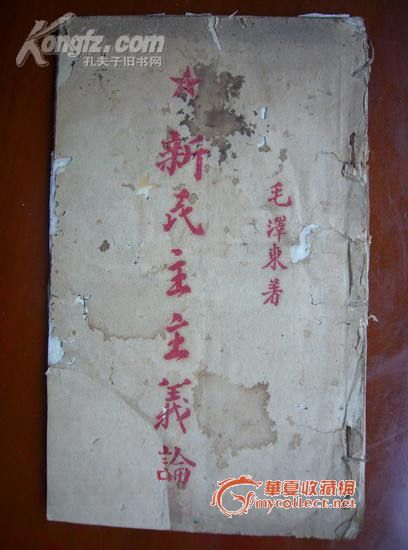 Kongfz.com
孔夫子旧书网
★新民主主義論
毛澤東著
華夏收藏網
mycollect.net